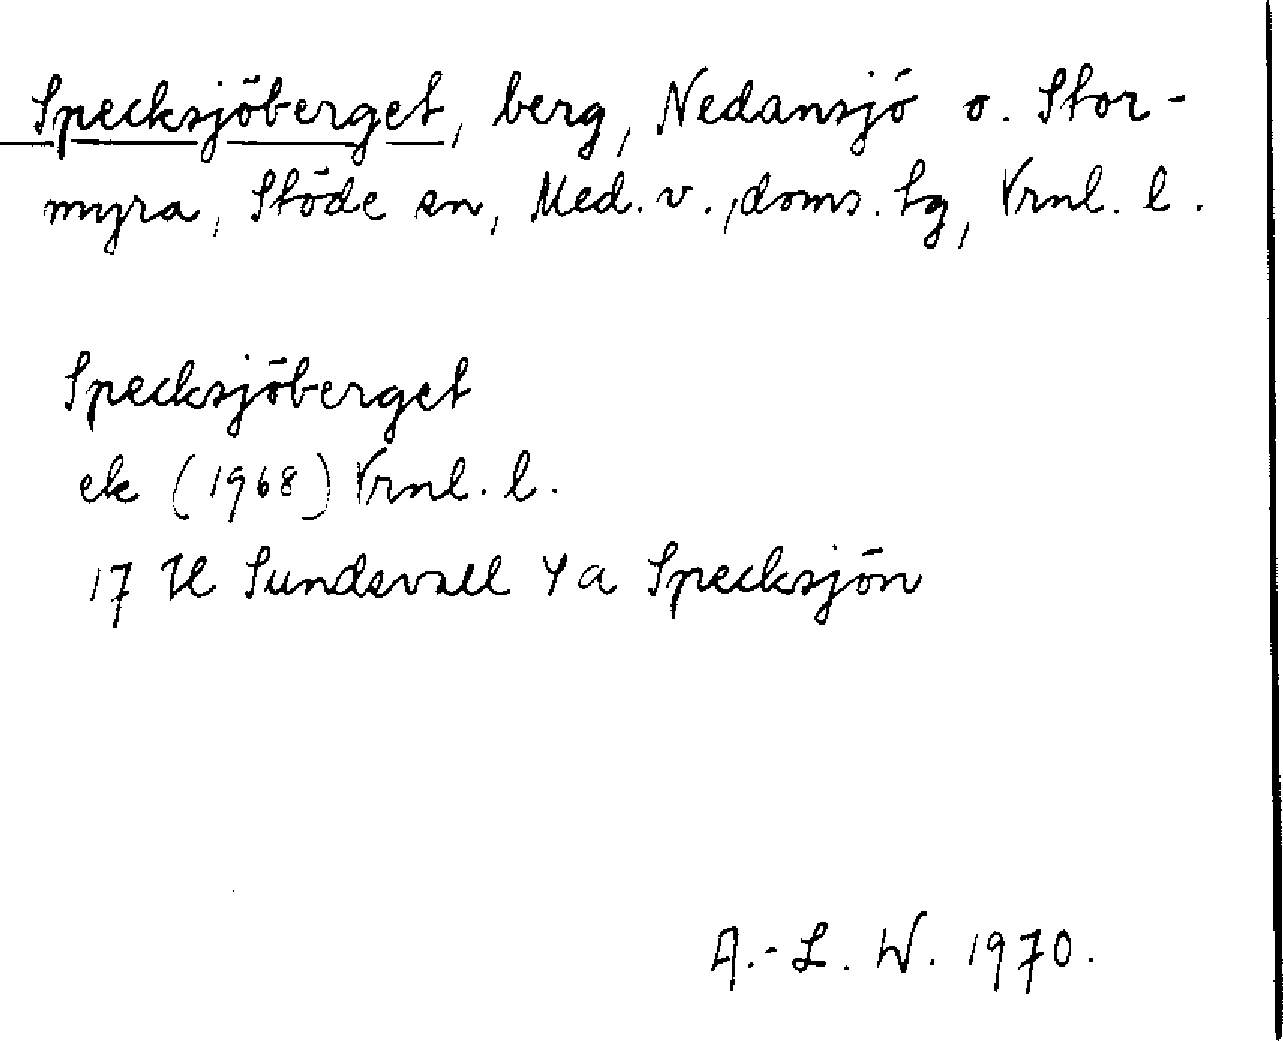 Specksjöberget, berg, Nedansjö o. Stor-
myra, Stöde sn, Med. v., doms. tg, Vrnl. l.
Specksjöberget
ek (1968) Vrnl. l.
17 H Sundsvall 4a Specksjön
A.-L. W. 1970.